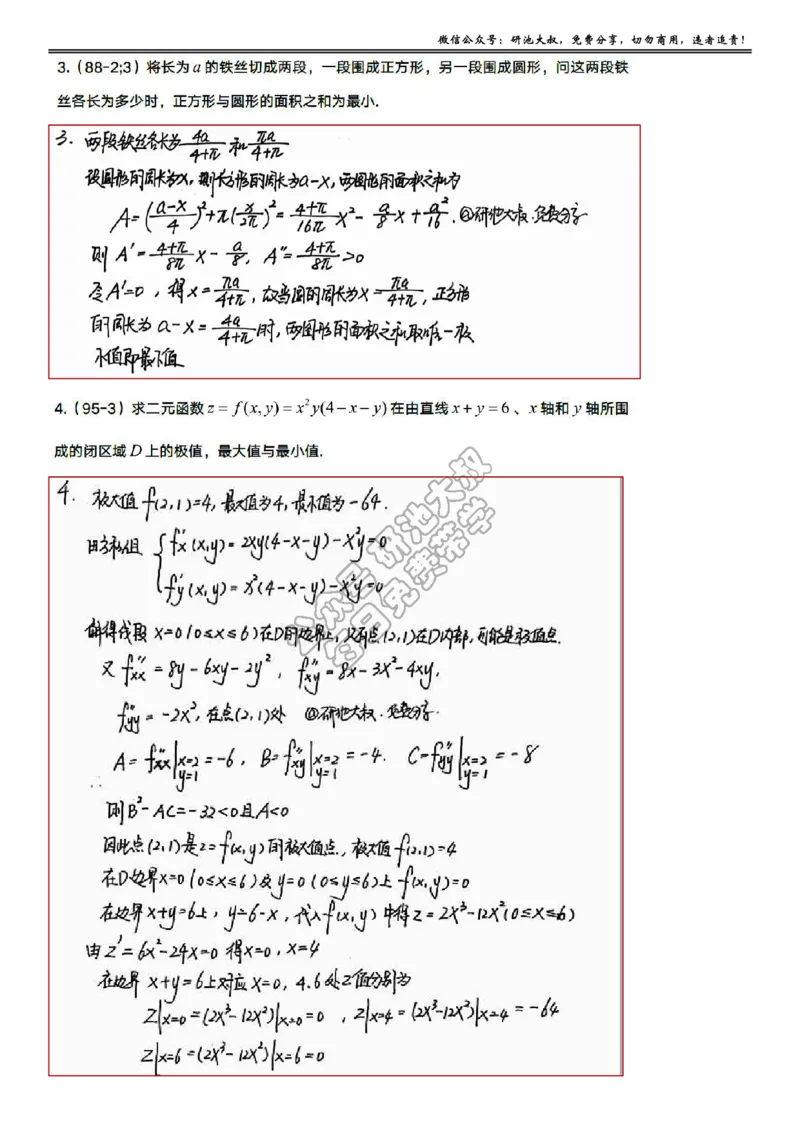 微信公众号：研池大叔，免费分享，切勿商用，违者追责！
3.（88-2;3）将长为 a 的铁丝切成两段，一段围成正方形，另一段围成圆形，问这两段铁
丝各长为多少时，正方形与圆形的面积之和为最小.
3. 两段铁丝各长为 4a/(4+π) 和 πa/(4+π)
设圆形的周长为x，则长方形的周长为a-x，两图形的面积之和为
A=((a-x)/4)²+π(x/2π)²=(4+π)/(16π) x²- a/8 x + a²/16. @研池大叔.免费分享
则 A'=(4+π)/(8π) x - a/8, A''=(4+π)/(8π) >0
令A'=0，得x=πa/(4+π)，故当圆的周长为x=πa/(4+π)，正方形
的周长为 a-x=4a/(4+π)时，两图形的面积之和取唯一极
小值即最小值
4.（95-3）求二元函数 z = f(x,y) = x²y(4-x-y) 在由直线 x+y=6 、x 轴和 y 轴所围
成的闭区域 D 上的极值，最大值与最小值.
4. 极大值 f(2,1)=4, 最大值为4, 最小值为-64.
由方程组 { f'x(x,y)=2xy(4-x-y)-x²y=0
f'y(x,y)=x²(4-x-y)-x²y=0
解得线段 x=0(0≤x≤6)在D的边界上，只有点(2,1)在D内部，可能是极值点.
又 f''xx=8y-6xy-2y², f''xy=8x-3x²-4xy,
f''yy=-2x², 在点(2,1)处 @研池大叔.免费分享.
A=f''xx|x=2 y=1 =-6, B=f''xy|x=2 y=1 =-4. C=f''yy|x=2 y=1 =-8
则B²-AC=-32<0且A<0
因此点(2,1)是z=f(x,y)的极大值点，极大值f(2,1)=4
在D边界x=0(0≤x≤6)及y=0(0≤y≤6)上 f(x,y)=0
在边界x+y=6上，y=6-x，代入f(x,y)中得z=2x³-12x²(0≤x≤6)
由z'=6x²-24x=0 得x=0, x=4
在边界 x+y=6上对应x=0, 4.6处z值分别为
z|x=0=(2x³-12x²)|x=0=0 , z|x=4=(2x³-12x²)|x=4=-64
z|x=6=(2x³-12x²)|x=6=0
公众号 研池大叔
每日免费带学